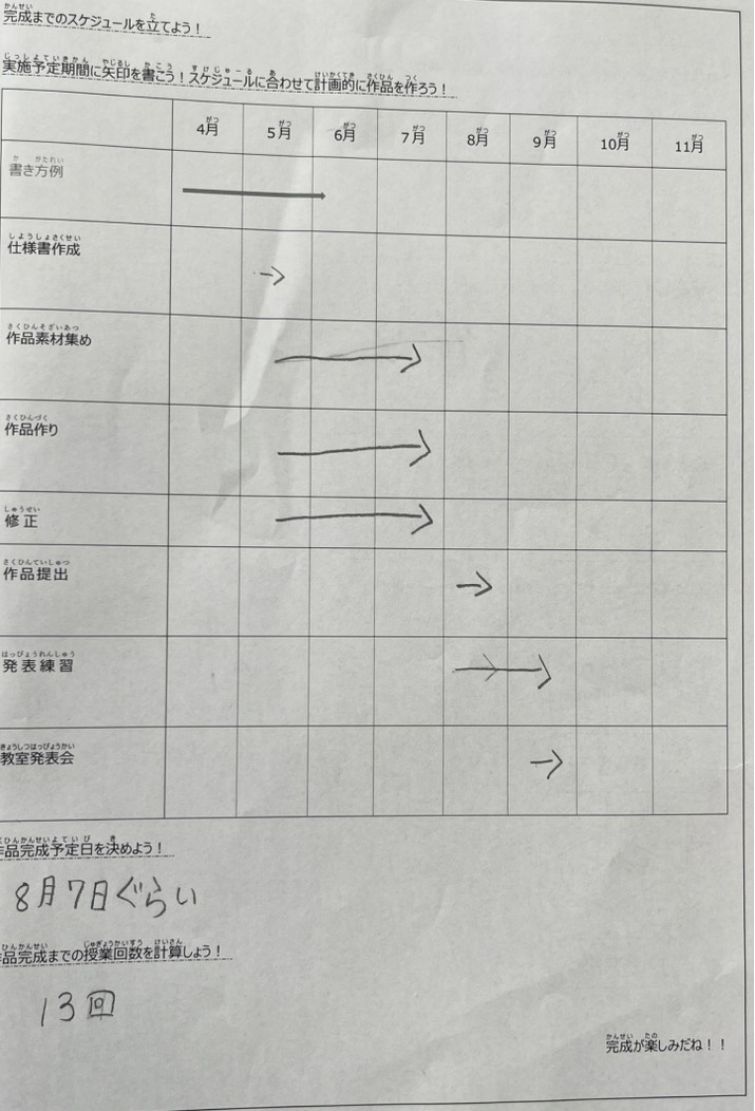 完成までのスケジュールを立てよう！
実施予定期間に矢印を書こう！スケジュールに合わせて計画的に作品を作ろう！
4月 5月 6月 7月 8月 9月 10月 11月
書き方例
仕様書作成
作品素材集め
作品作り
修正
作品提出
発表練習
教室発表会
作品完成予定日を決めよう！
8月7日ぐらい
作品完成までの授業回数を計算しよう！
13回
完成が楽しみだね！！